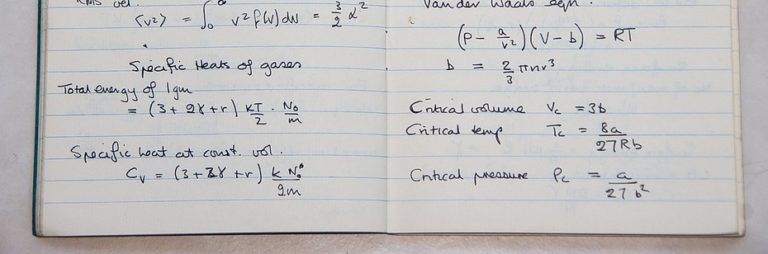 RMS vel.
⟨v²⟩ = ∫₀^∞ v² f(v) dv = 3/2 α²
Specific Heats of gases
Total energy of 1gm
= (3 + 2γ + r) kT/2 · N₀/m
Specific heat at const. vol.
Cᵥ = (3 + 2γ + r) k N₀/2m
Van der Waals eqn.
(P - a/v²)(V - b) = RT
b = 2/3 πnr³
Critical volume Vc = 3b
Critical temp Tc = 8a/27Rb
Critical pressure Pc = a/27b²